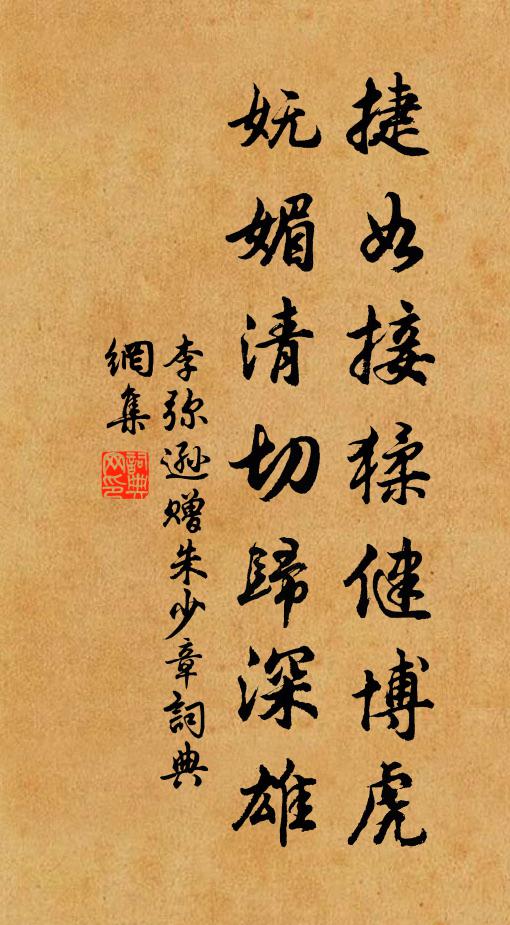 捷如接猱健博虎
妩媚清切歸深雄
李弥遜赠朱少章詞典
網集
詞典
网印